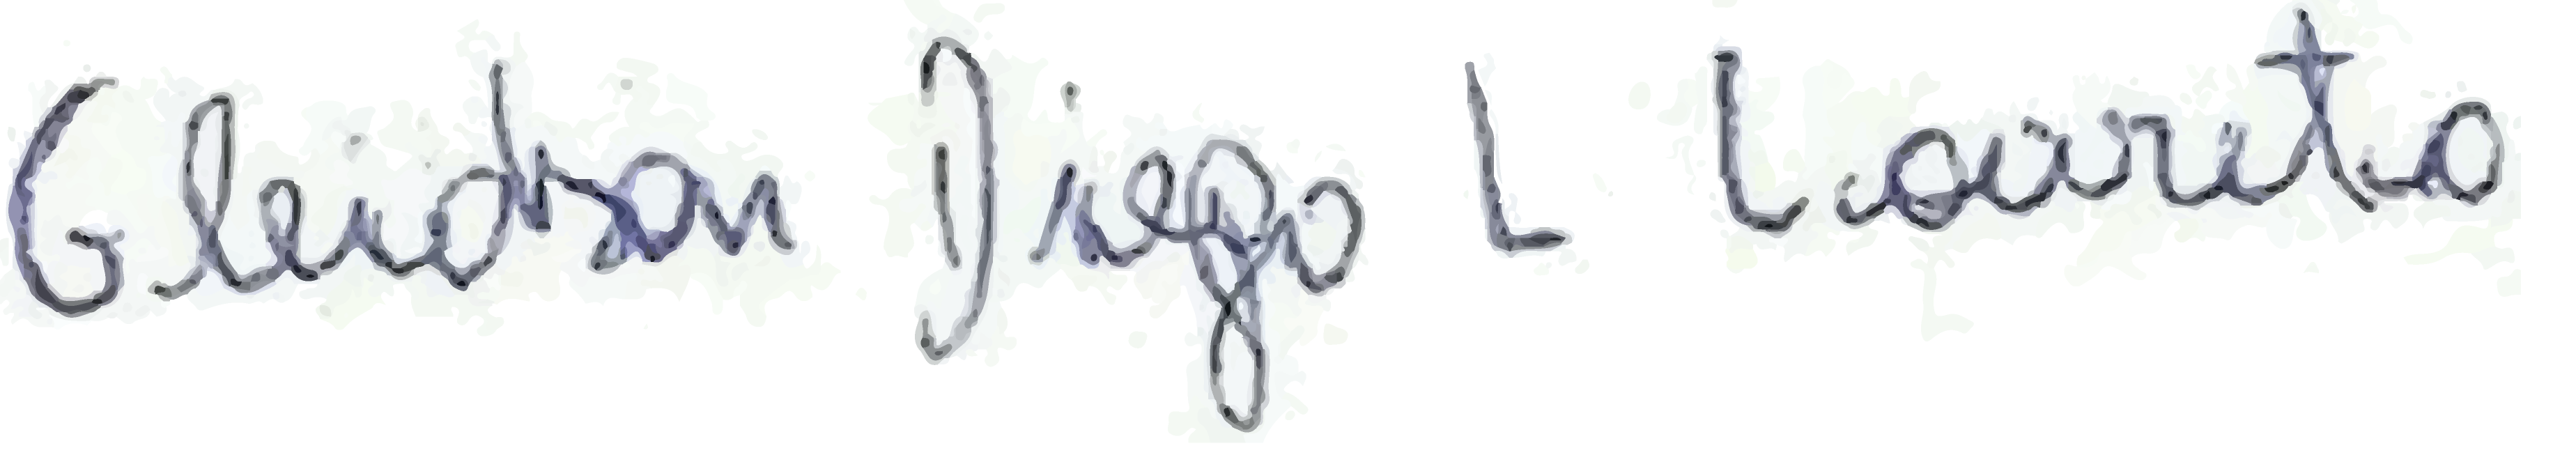 Gleidson Diego L Laurito